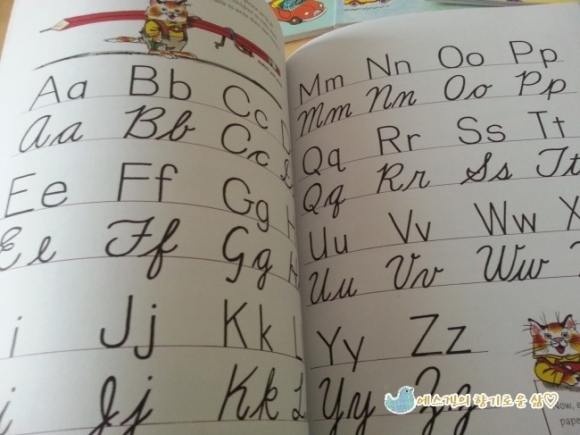 Aa Bb Cc
Aa Bb Cc
Ee Ff Gg H
Ee Ff Gg H
i Jj Kk L
i Jj Kk L
Mm Nn Oo Pp
Mm Nn Oo Pp
Qq Rr Ss Tt
Qq Rr Ss Tt
Uu Vv Ww X
Uu Vv Ww
Yy Zz
Yy Zz
Now,
pape
에스겔의 향기로운 삶♡